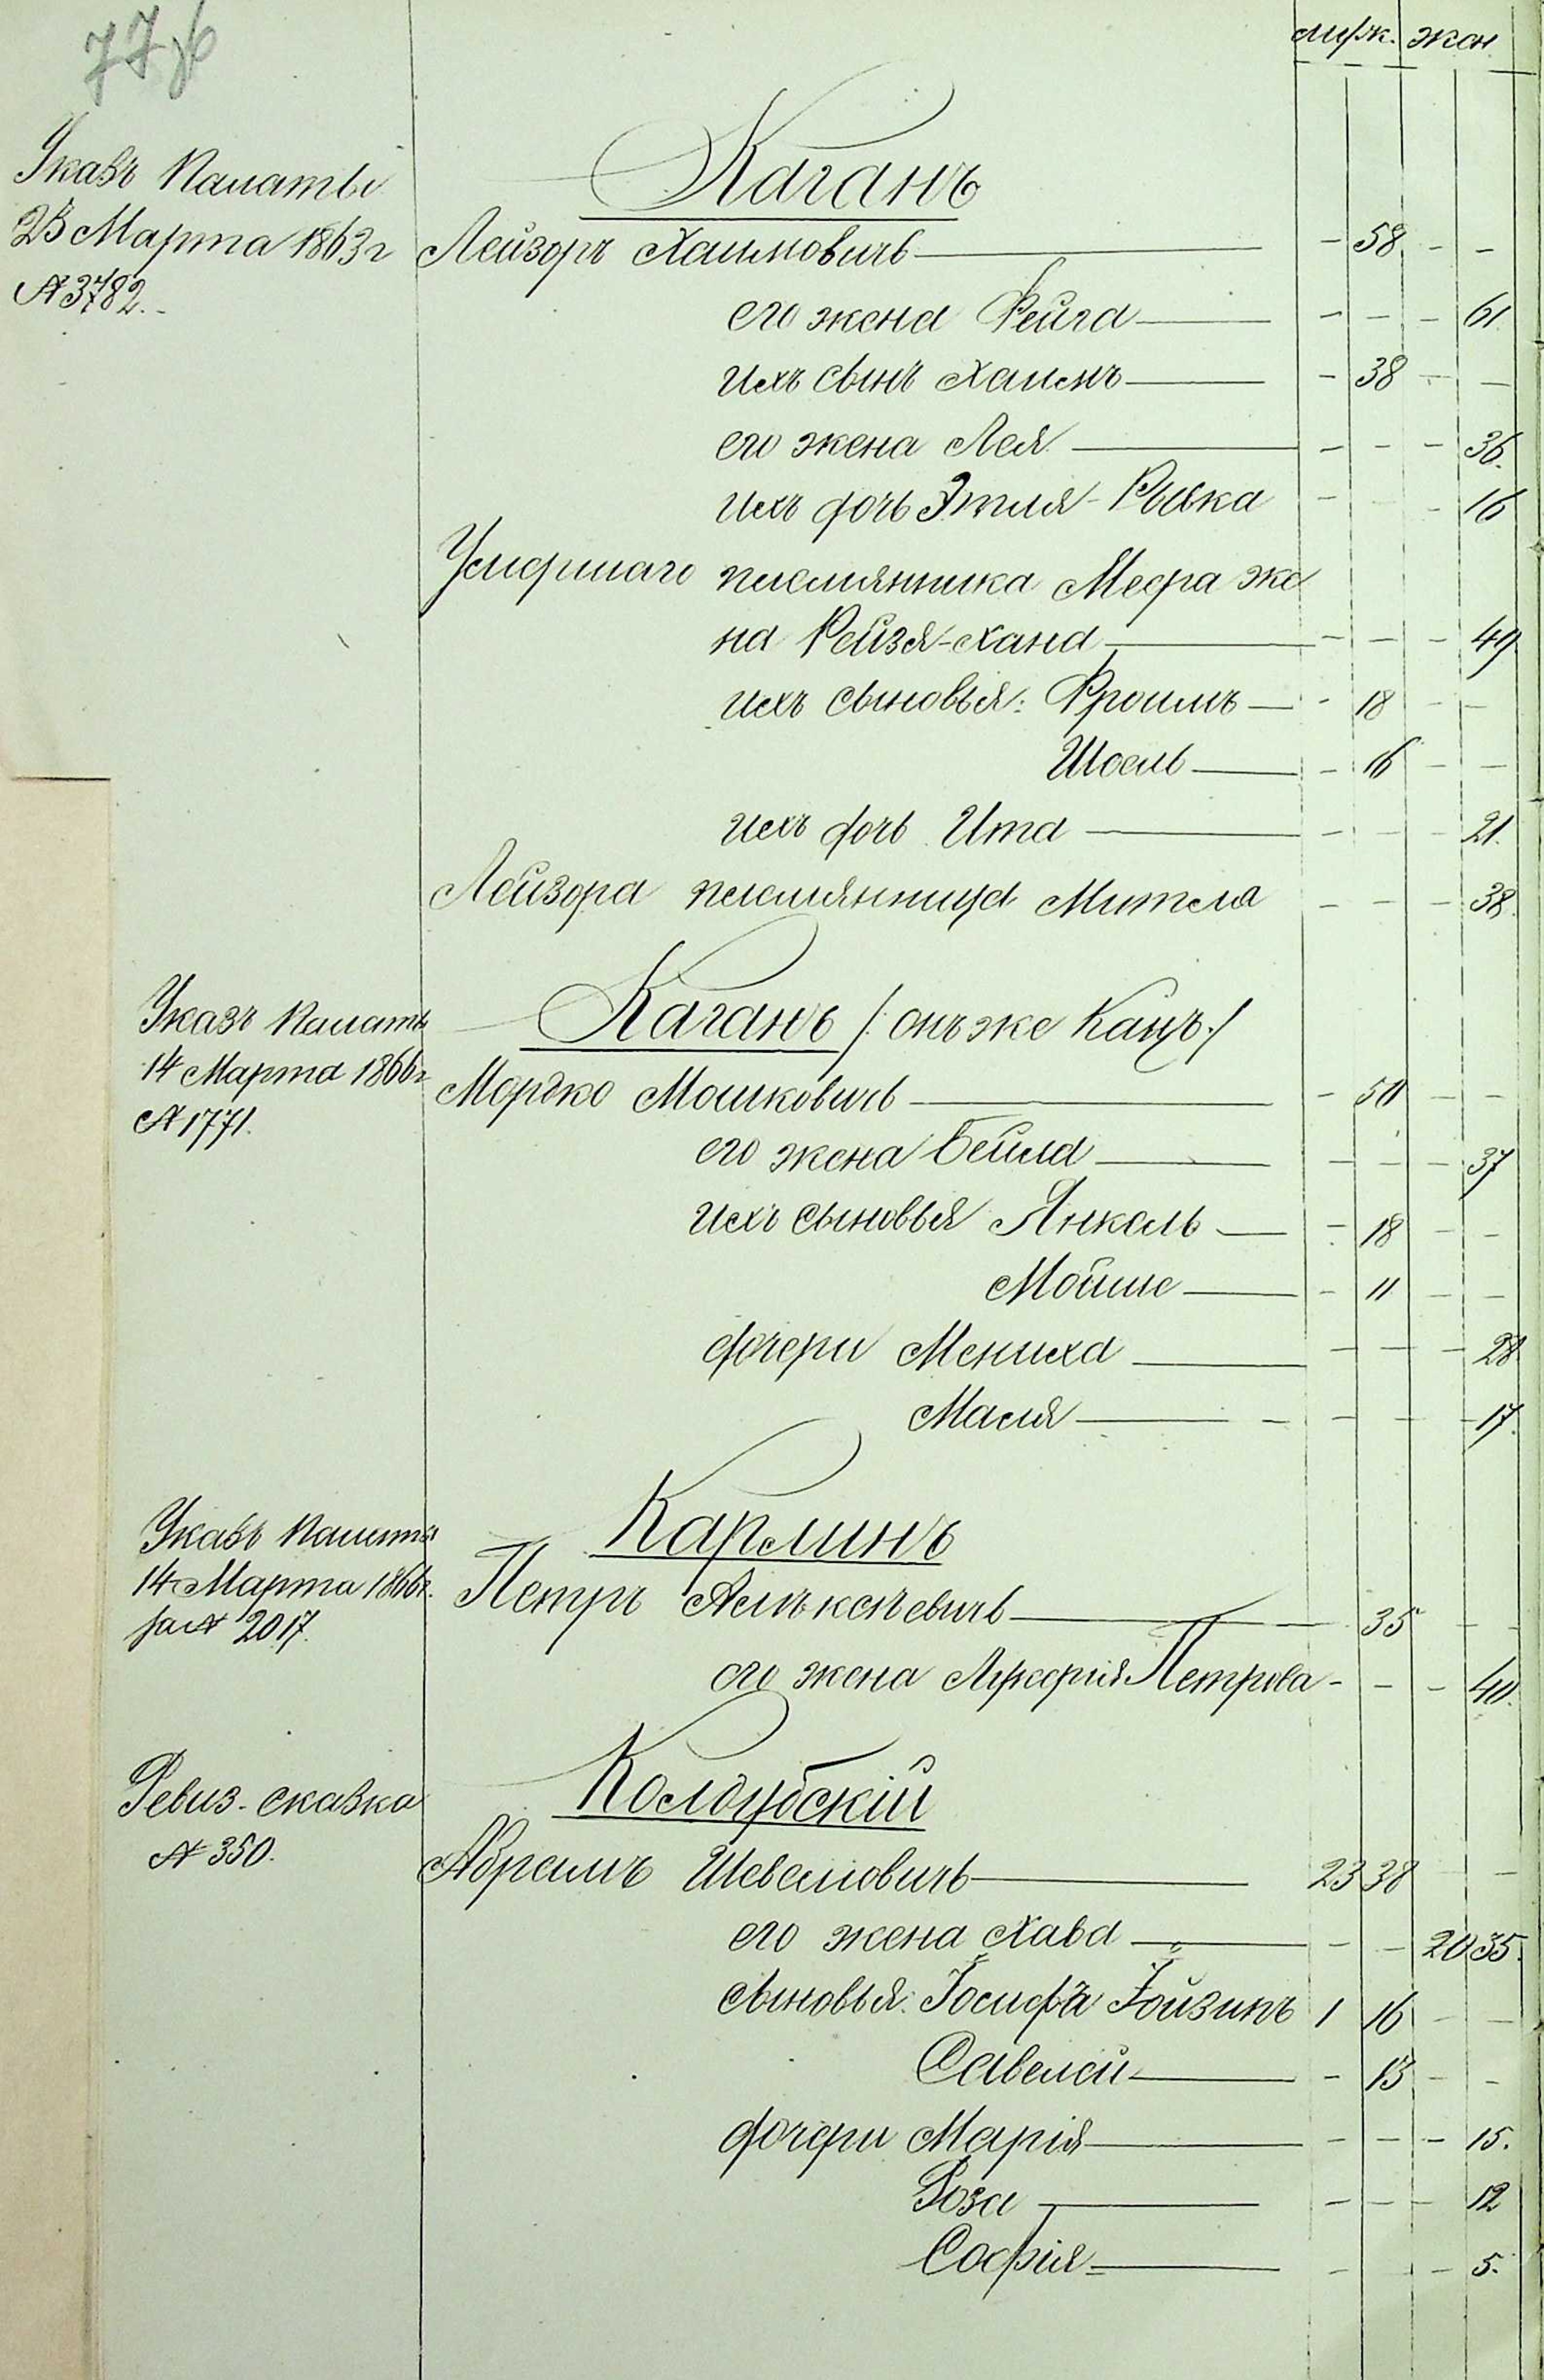 77 об
муж. жен.
Каганъ
Указъ Палаты
23 Марта 1863 г
№ 3782.
Лейзоръ Хаимовичъ — - 58 - -
его жена Фейга — - - - 61
ихъ сынъ Хаимъ — - 38 - -
его жена Лея — - - - 36.
ихъ дочь Этля-Рывка - - 16
Умершаго племянника Меера же
на Рейзя-Хана — - - - 49
ихъ сыновья: Фроимъ — - 18 - -
Шоель — - 16 - -
ихъ дочь Ита — - - - 21.
Лейзора племянница Митела - - - 38.
Каганъ /: онъ же Кацъ :/
Указъ Палаты
14 Марта 1866 г
№ 1771.
Мордко Мошковичъ — - 50 - -
его жена Бейла — - - - 37
ихъ сыновья Янкель — - 18 - -
Мойше — - 11 - -
дочери Мениха — - - - 28
Масля — - - - - 17.
Карлинъ
Указъ Палаты
14 Марта 1866 г.
за № 2017.
Петръ Алѣксѣевичъ — 35 - -
его жена Лукерія Петрова - - - 40.
Колдубскій
Ревиз. сказка
№ 350.
Абрамъ Шевелювичъ — 23 38 -
его жена Хава — - - 20 35.
сыновья: Іосифъ Іойзипъ 1 16 - -
Савелей — - 13 - -
дочери Марія — - - - 15.
Роза — - - - 12
Софія — - - 5.